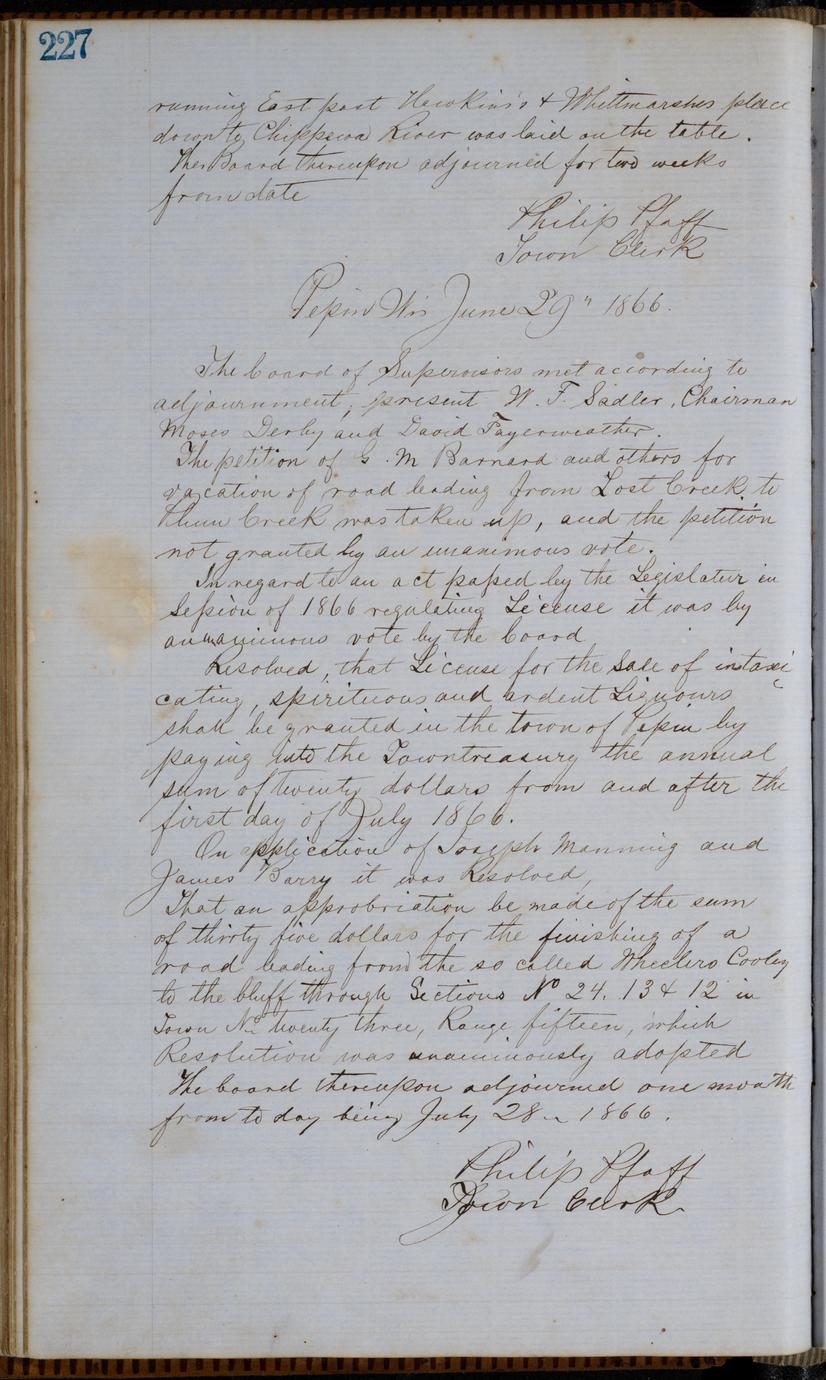 227
running East past Hewkins's & Whittmarshes place
down to Chippewa River was laid on the table.
The Board thereupon adjourned for two weeks
from date
Philip Pfaff
Town Clerk
Pepin Wis June 29" 1866.
The board of Supervisors met according to
adjournment, present W. F. Sadler, Chairman
Moses Derby and David Fayerweather.
The petition of G. M Barnard and others for
vacation of road leading from Lost Creek to
Plum Creek was taken up, and the petition
not granted by an unanimous vote.
In regard to an act passed by the Legislatur in
Session of 1866 regulating License it was by
an unanimous vote by the board
Resolved, that License for the Sale of intoxi
cating, spirituous and ardent Liquours
shall be granted in the town of Pepin by
paying into the Towntreasury the annual
sum of twenty dollars from and after the
first day of July 1866.
On application of Joseph Manning and
James Barry it was Resolved,
That an approbriation be made of the sum
of thirty five dollars for the finishing of a
road leading from the so called Wheelers Cooley
to the bluff through Sections No 24. 13 & 12 in
Town No twenty three, Range fifteen, which
Resolution was unanimously adopted
The board thereupon adjourned one month
from to day being July 28" 1866.
Philip Pfaff
Town Clerk